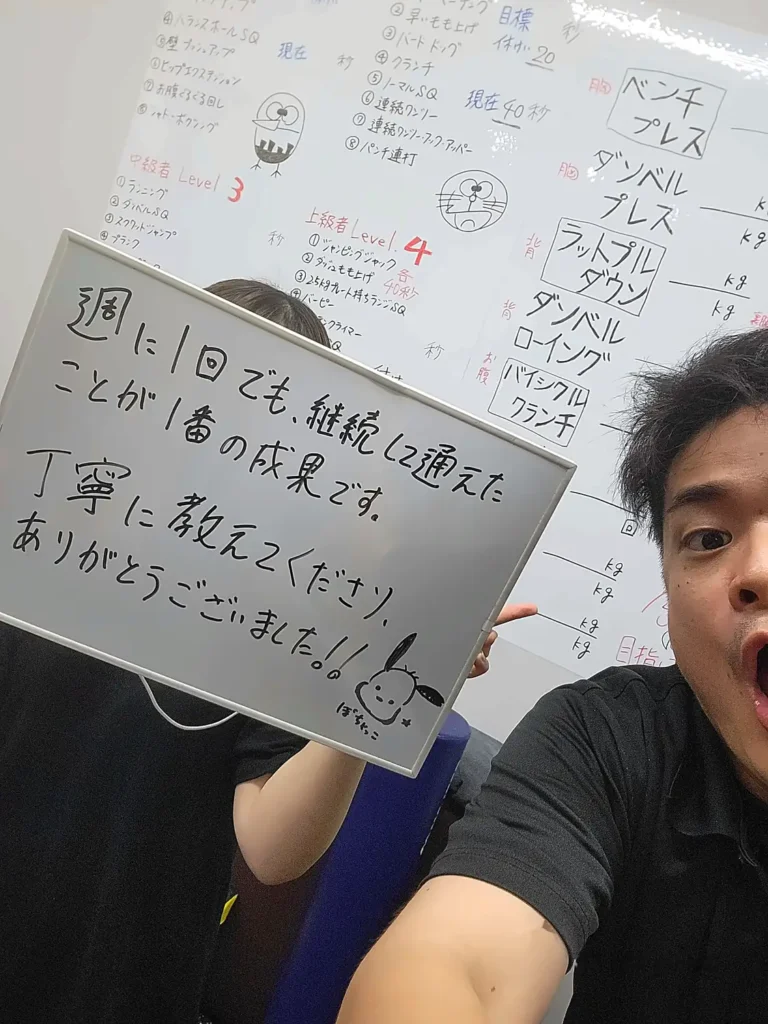 週に1回でも、継続して通えた
ことが1番の成果です。
丁寧に教えてくださり、
ありがとうございました!!
ぽちゃっこ
④バランスボールSQ
⑤壁プッシュアップ
⑥ヒップエクステンション
⑦お腹ぐるぐる回し
⑧シャドーボクシング
現在
秒
中級者 Level 3
①ランニング
②ダンベルSQ
③スクワットジャンプ
④プランク
秒
②早いもも上げ
③バードドッグ
④クランチ
⑤ノーマルSQ
⑥連続ワンツー
⑦連続ワンツーフックアッパー
⑧パンチ連打
目標
秒
20
現在 40秒
上級者 Level. 4
①ジャンピングジャック
②ダッシュもも上げ
③2.5kgプレート持ちランジSQ
④バーピー
各
40秒
クライマー
秒
胸 ベンチ
プレス
胸 ダンベル
プレス
kg
kg
背 ラットプル
ダウン
kg
kg
背 ダンベル
ローイング
お腹 バイシクル
クランチ
回
kg
kg
kg
kg
目指